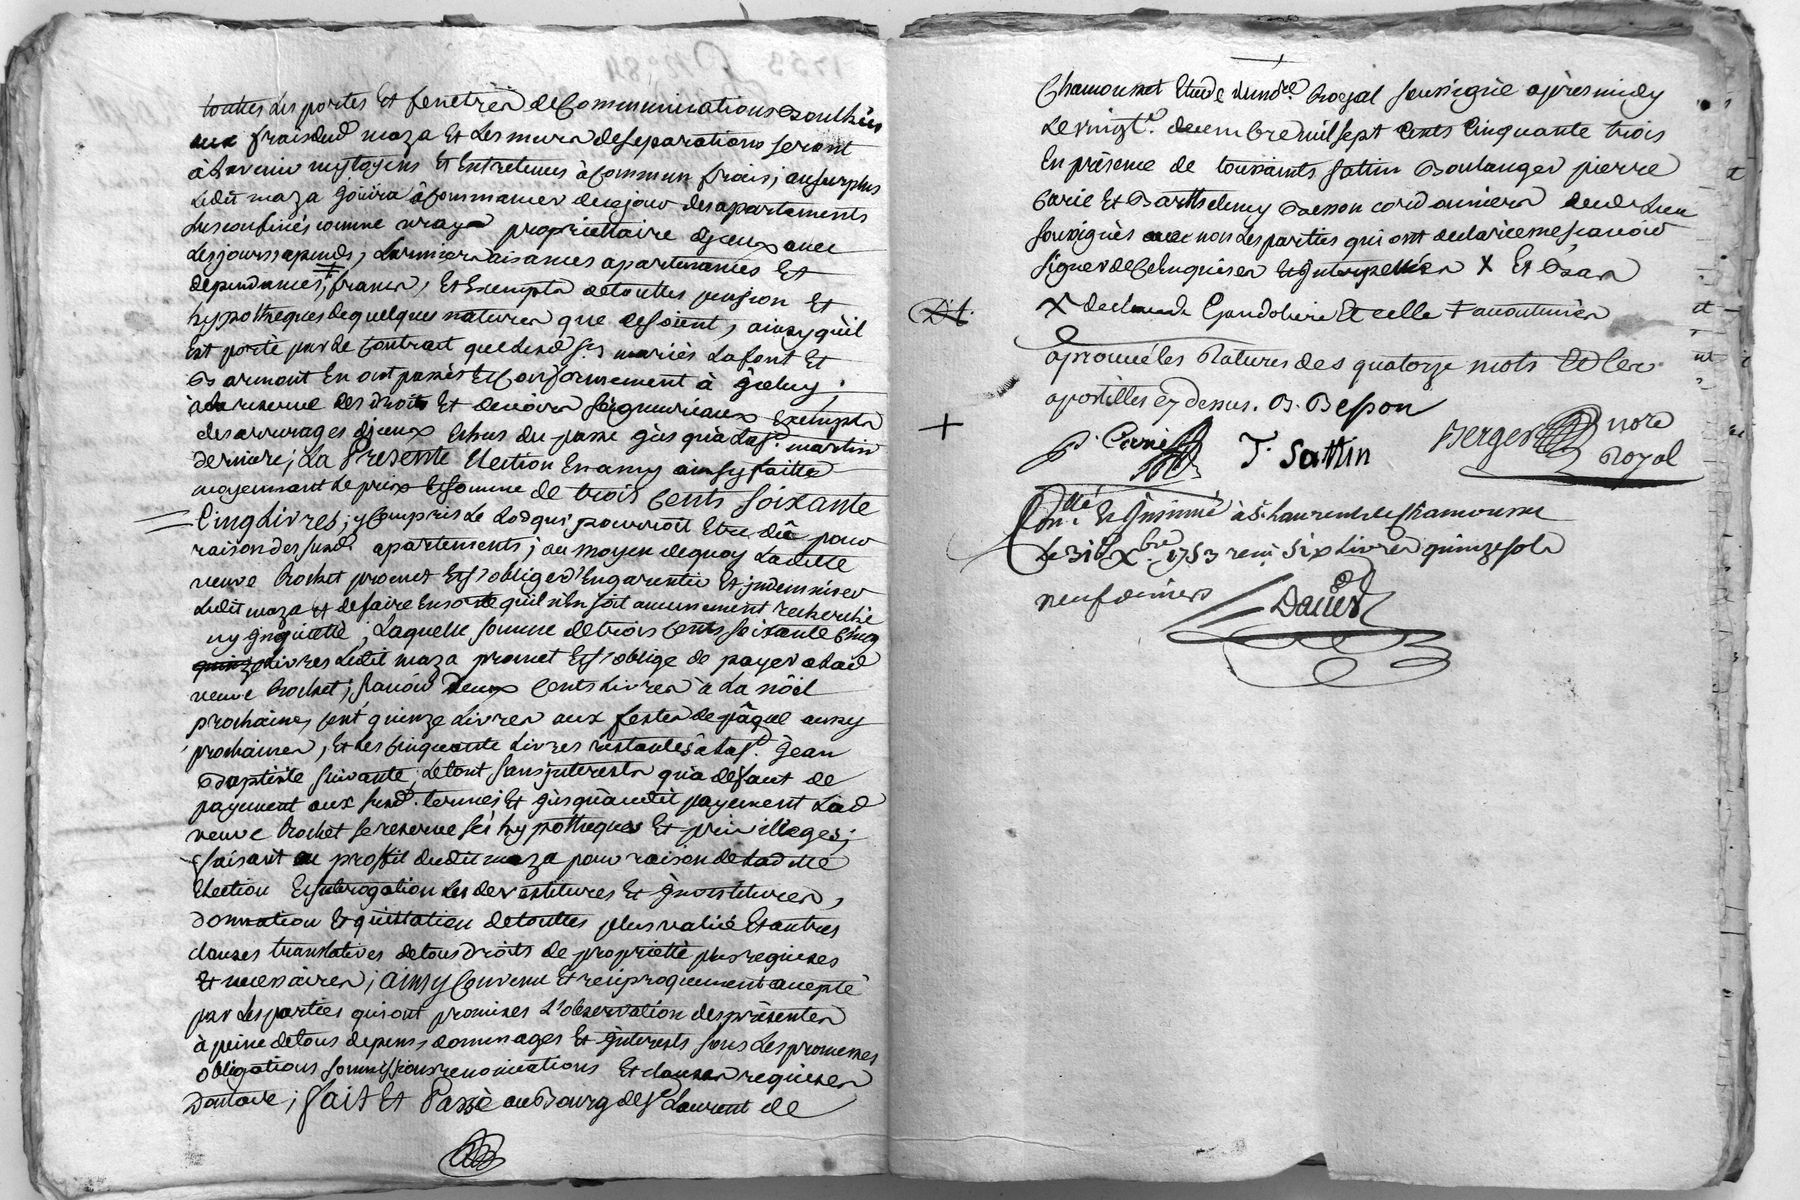 touttes Les portes Et fenetres de Communications Boulhiés
aux frais dud maza Et Les murs de separations seront
à Lavenir mytoyens Et Entretenus à Commun frais, au surplus
Ledit maza Jouira à Commancer de ce jour des apartements
sus confinés comme vraye propriettaire d'jceux avec
Les jours, apends, Larmiers aisances apartenances Et
dependances, francs, Et Exempts de touttes pension Et
hypotheques de quelques natures que ce soient, ainsy qu'il
Est porté par Le Contrait que Lesd Srs mariés Lafont Et
Barmont En ont passés Et Conformement à Jceluy,
à La reserve des droits Et devoirs seigneuriaux Exempts
des arrerages d'jceux Echus du passé jusqu'à La St martin
derniere; La Presente Election En amy ainsy faitte
moyennant Le prix Et somme de trois Cents soixante
Cinq Livres, y Compris Le Lod qui pourroit Etre dû pour
raison des susd apartements; au moyen de quoy Laditte
veuve Crochet promet Et s'oblige d'En garentir Et jndemniser
Ledit maza Et de faire En sorte qu'il n'En soit aucunement recherché
ny Jnquietté; Laquelle somme de trois Cents soixante Cinq
quinze Livres Ledit maza promet Et s'oblige de payer a Lad
veuve Crochet; sçavoir Deux Cents Livres à La nôel
prochaine, Cent quinze Livres aux festes de pâque aussy
prochaines, Et Les Cinquante Livres restantes à La St Jean
Baptiste suivante, Le tout sans jnterests qu'a defaut de
payement aux susd. termes Et jusqu'audit payement Lad
veuve Crochet se reserve ses hypotheques Et privilleges;
faisant au proffit dudit maza pour raison de Laditte
Election Et subrogation Les devestitures Et Jnvestitures,
Donnation Et quittation de touttes plus value Et autres
clauses translatives de tous Droits de proprietté plus requises
Et necessaires; Ainsy Convenu Et reciproquement accepté
par Les parties qui ont promises L'observation des presentes
à peine de tous depens, dommages Et Jnterests sous Les promesses
obligations soumissions renonciations Et clauses requises
Dont acte; fait Et Passé au Bourg de St Laurent de
Chamousset Etude du nore. Royal soussigné après midy
Le vingte. decembre mil sept Cents Cinquante trois
En présence de toussaints Sattin Boulanger pierre
Carié Et Barthelemy Besson cordonniers dud Lieu
soussignés avec nous Les parties qui ont declarés ne sçavoir
signer de Ce Enquises Et Jnterpellées X Et
X de Et celle + acoutumés
aprouvé les Ratures des quatorze mots Et Les
apostilles cy dessus. B. Besson
+
P. Carié T. Sattin Berger nore
Royal
Conllé Et Jnsinué à St. Laurent de Chamousset
Le 31e Xbre. 1753 reçu six Livres quinze sols
neuf deniers
Dacier